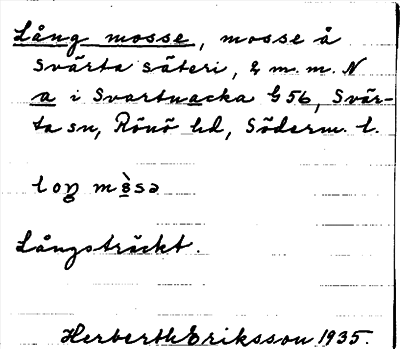 Lång mosse, mosse å
Svärta säteri, 2 m. m. N
a i Svartnacka G 56, Svär-
ta sn, Rönö hd, Söderm. l.
Långsträckt.
Herberth Eriksson 1935.